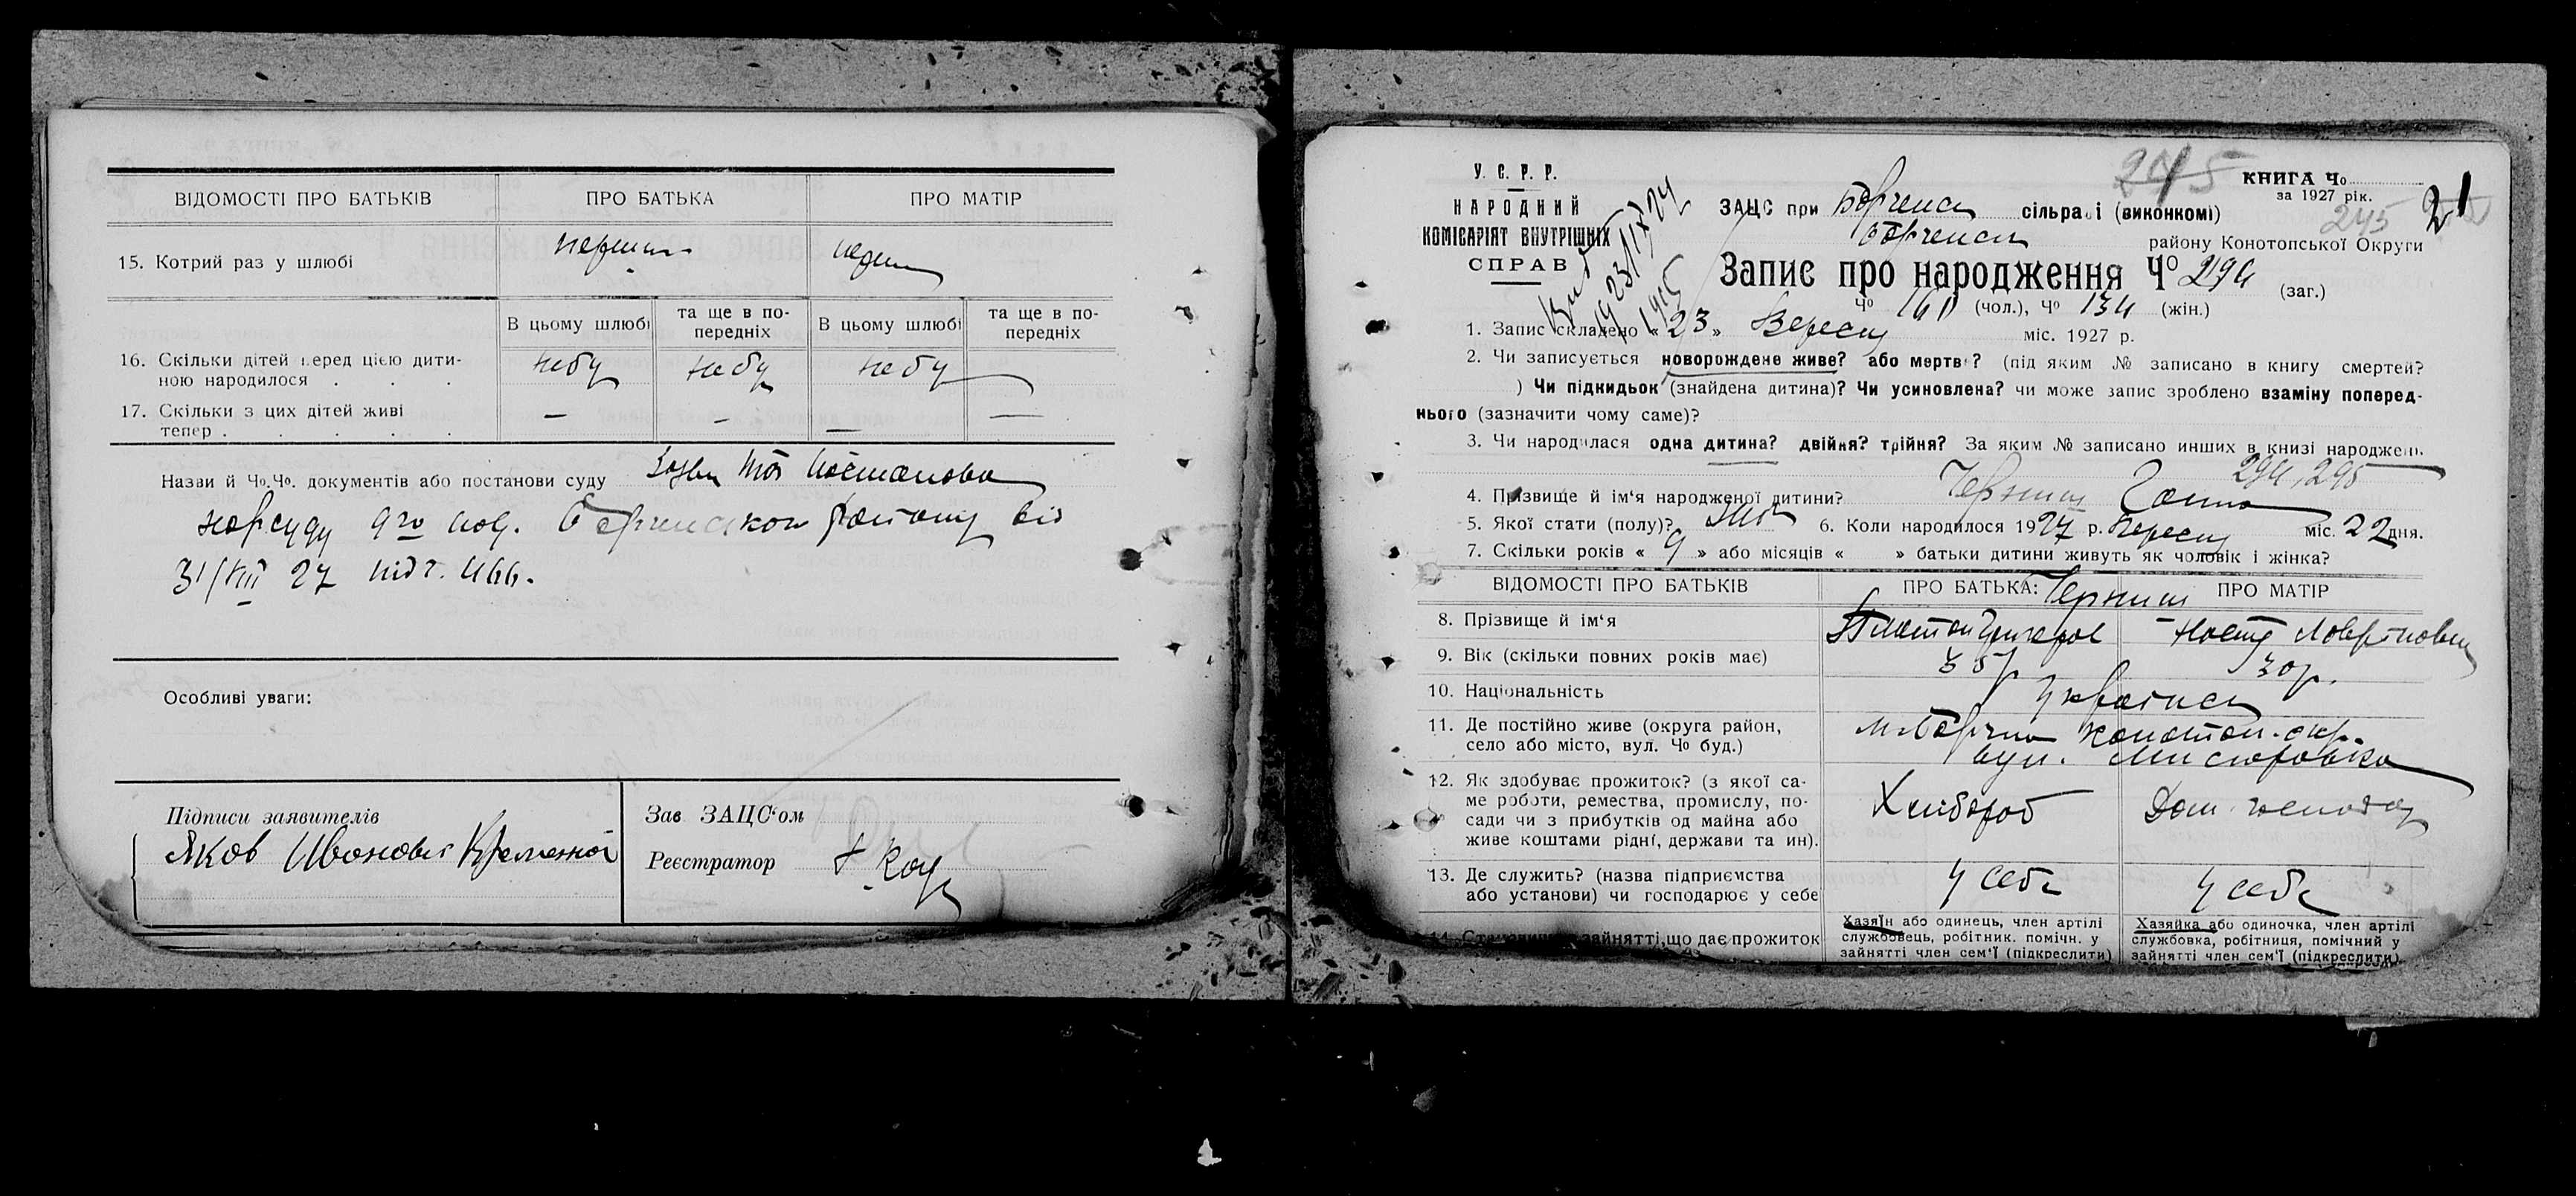 ВІДОМОСТІ ПРО БАТЬКІВ ПРО БАТЬКА ПРО МАТІР
15. Котрий раз у шлюбі
В цьому шлюбі та ще в попередніх В цьому шлюбі та ще в попередніх
16. Скільки дітей перед цією дити-
ною народилося . . . небу небу небу
17. Скільки з цих дітей живі
тепер . . . . . — — — —
Назви й Чо.Чо. документів або постанови суду
нарсуду 9го від
31/VIII 27 466.
Особливі уваги:
Підписи заявителів
Яков Иванович Кременной
Зав. ЗАЦС‘ом
Реєстратор
У. С. Р. Р.
НАРОДНИЙ
КОМІСАРІЯТ ВНУТРІШНІХ
СПРАВ
245
КНИГА Чо
за 1927 рік.
245 21
ЗАЦС при Борченск сільраді (виконкомі)
Борченск району Конотопської Округи
Запис про народження Чо 294 (заг.)
Чо 160 (чол.), Чо 134 (жін.)
1. Запис складено «23» Вересн міс. 1927 р.
2. Чи записується новорождене живе? або мертве? (під яким № записано в книгу смертей?
) Чи підкидьок (знайдена дитина)? Чи усиновлена? чи може запис зроблено взаміну поперед-
нього (зазначити чому саме)?
3. Чи народилася одна дитина? двійня? трійня? За яким № записано инших в книзі народжень
294, 295
4. Прізвище й ім‘я народженої дитини? Черниш Ганна
5. Якої стати (полу)? жін 6. Коли народилося 1927 р. Вересн міс. 22 дня.
7. Скільки років « 9 » або місяців « » батьки дитини живуть як чоловік і жінка?
ВІДОМОСТІ ПРО БАТЬКІВ ПРО БАТЬКА: ПРО МАТІР
Черниш
8. Прізвище й ім‘я Платон Григоров Настя
9. Вік (скільки повних років має) 35 р 30 р.
10. Національність Українск
11. Де постійно живе (округа район,
село або місто, вул. Чо буд.) м. Борзна Конотоп. окр.
вул.
12. Як здобуває прожиток? (з якої са-
ме роботи, ремества, промислу, по-
сади чи з прибутків од майна або
живе коштами рідні, держави та ин). Хлібороб Дом. господ
13. Де служить? (назва підприємства
або установи) чи господарює у себе у себе у себе
14. зайнятті, що дає прожиток
Хазяїн або одинець, член артілі
службовець, робітник. помічн. у
зайнятті член сем‘ї (підкреслити)
Хазяйка або одиночка, член артілі
службовка, робітниця, помічний у
зайнятті член сем‘ї (підкреслити)